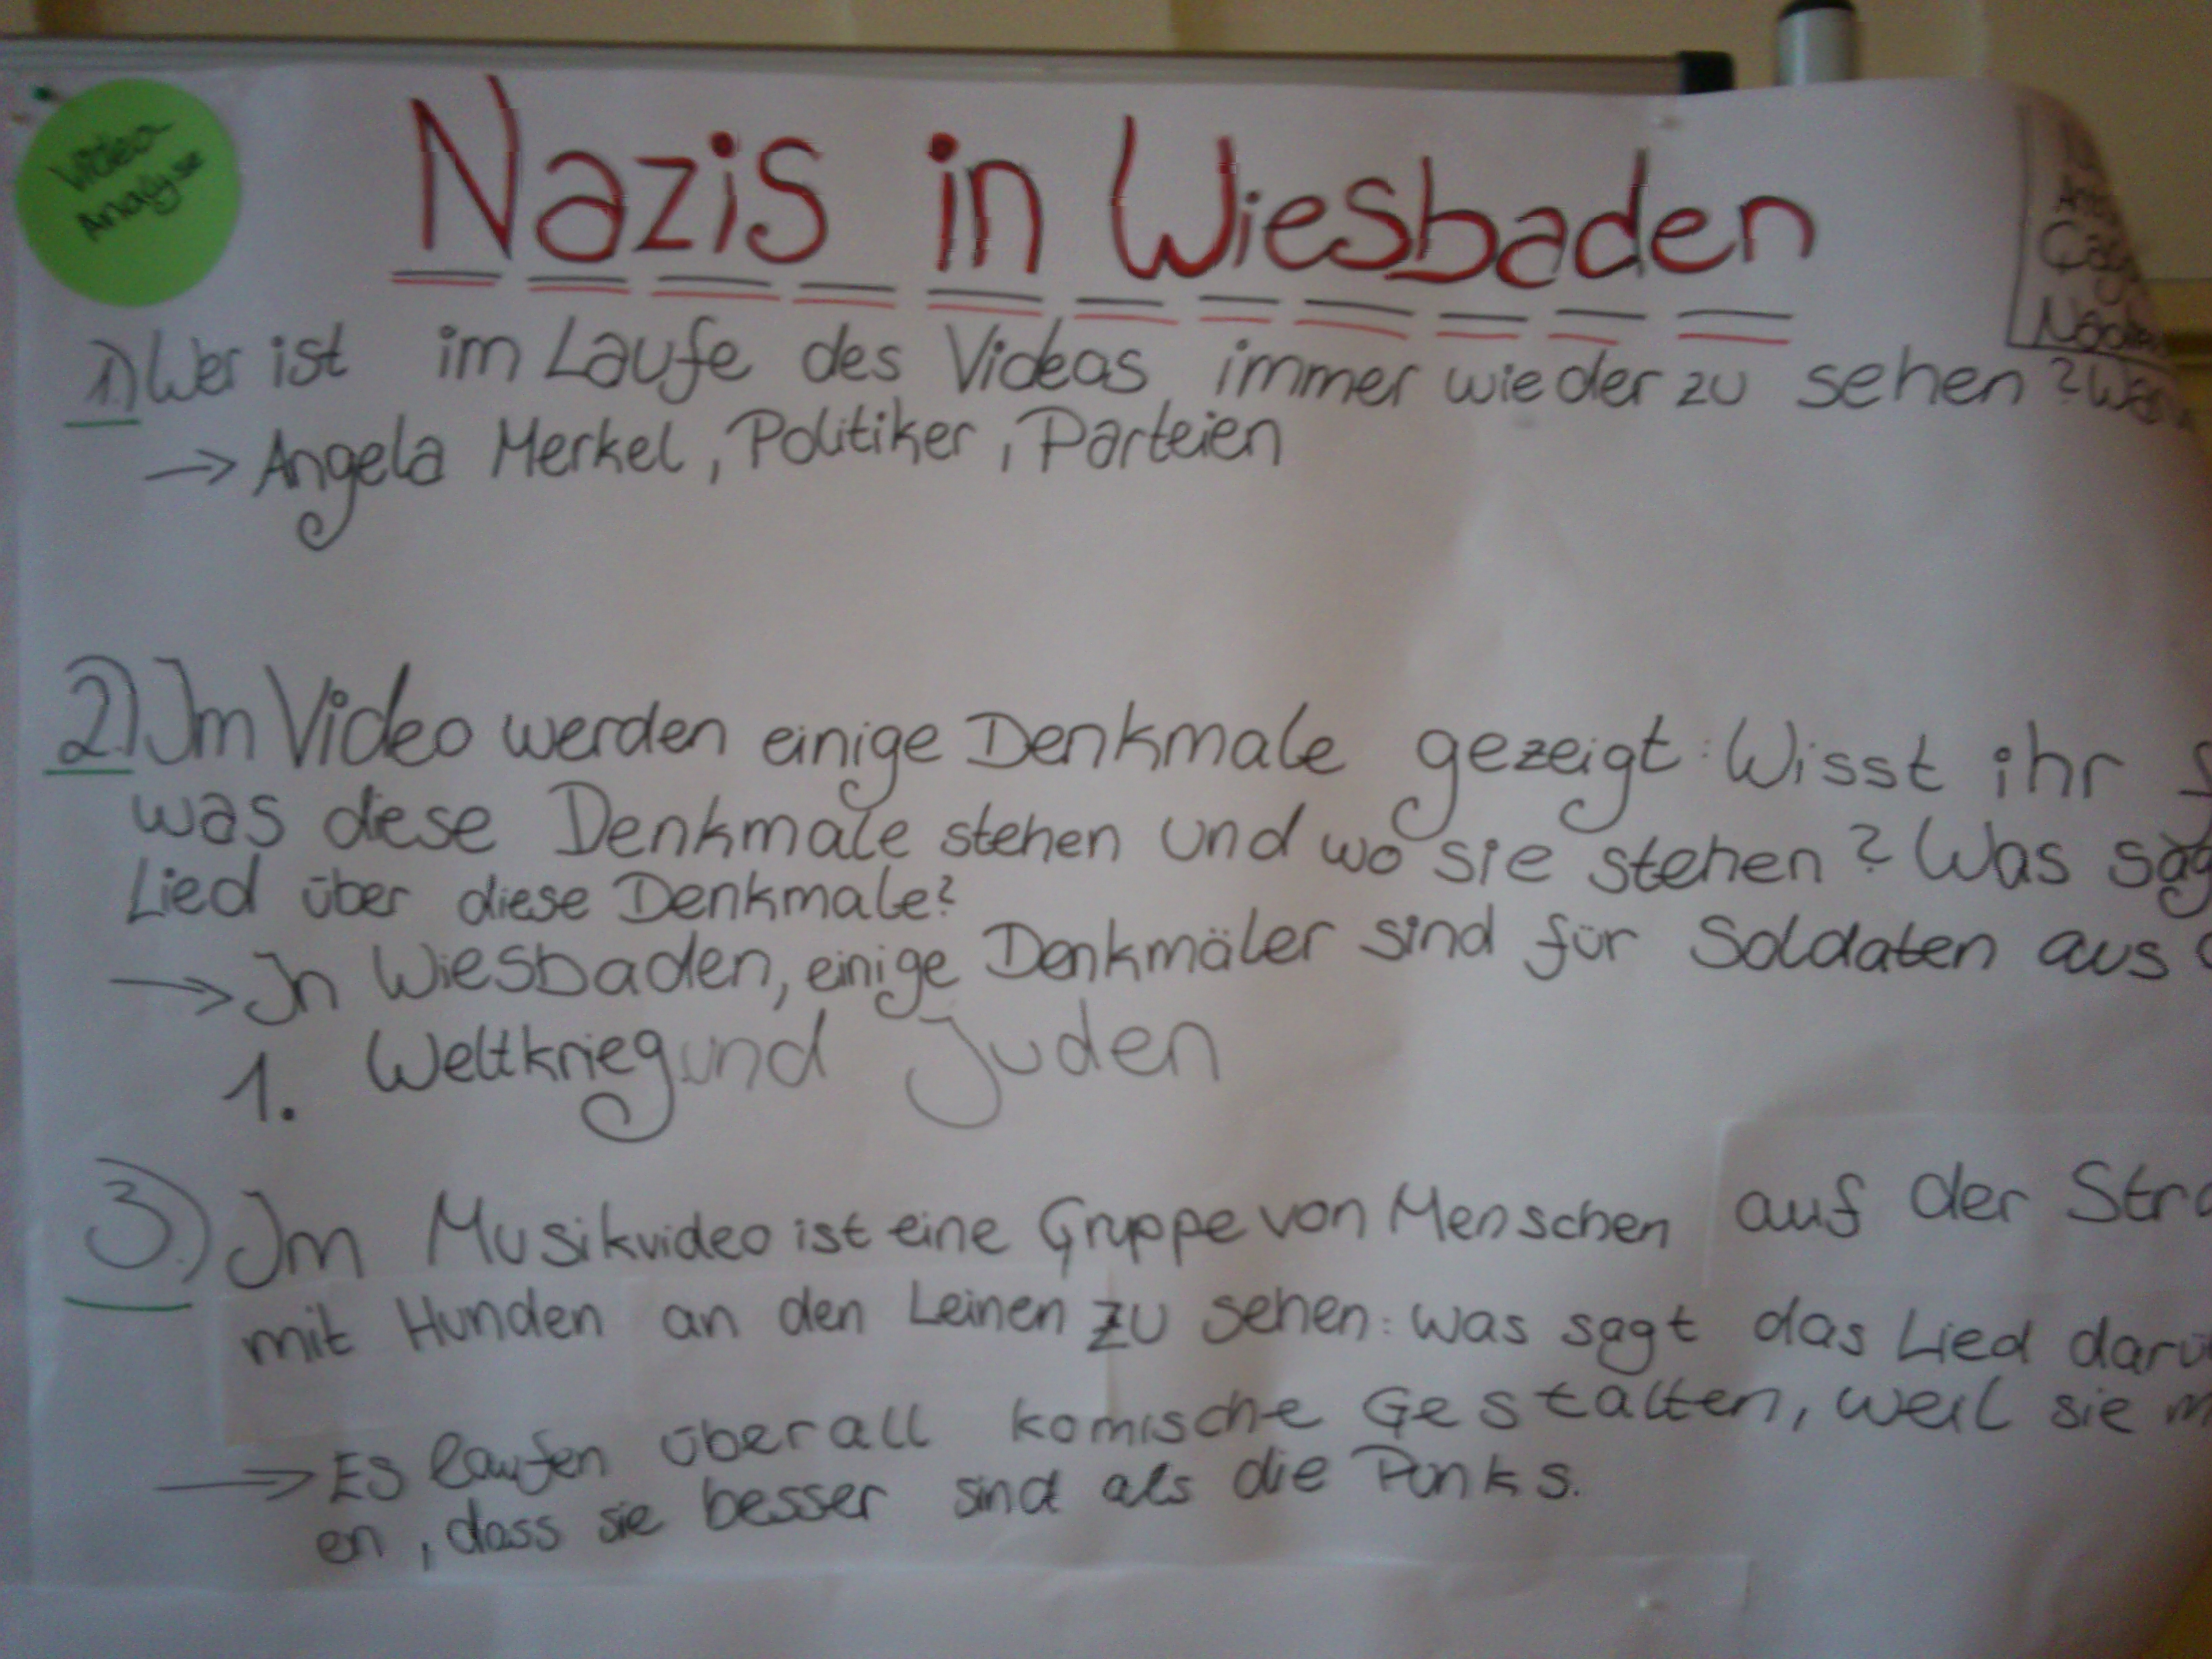 Video-
Analyse
Nazis in Wiesbaden
1.) Wer ist im Laufe des Videos immer wieder zu sehen?
→ Angela Merkel, Politiker, Parteien
2.) Im Video werden einige Denkmale gezeigt: Wisst ihr
was diese Denkmale stehen und wo sie stehen? Was
Lied über diese Denkmale?
→ In Wiesbaden, einige Denkmäler sind für Soldaten aus
1. Weltkrieg und Juden
3.) Im Musikvideo ist eine Gruppe von Menschen auf der
mit Hunden an den Leinen zu sehen: was sagt das Lied
→ Es laufen überall komische Gestalten, weil sie
en, dass sie besser sind als die Punks.